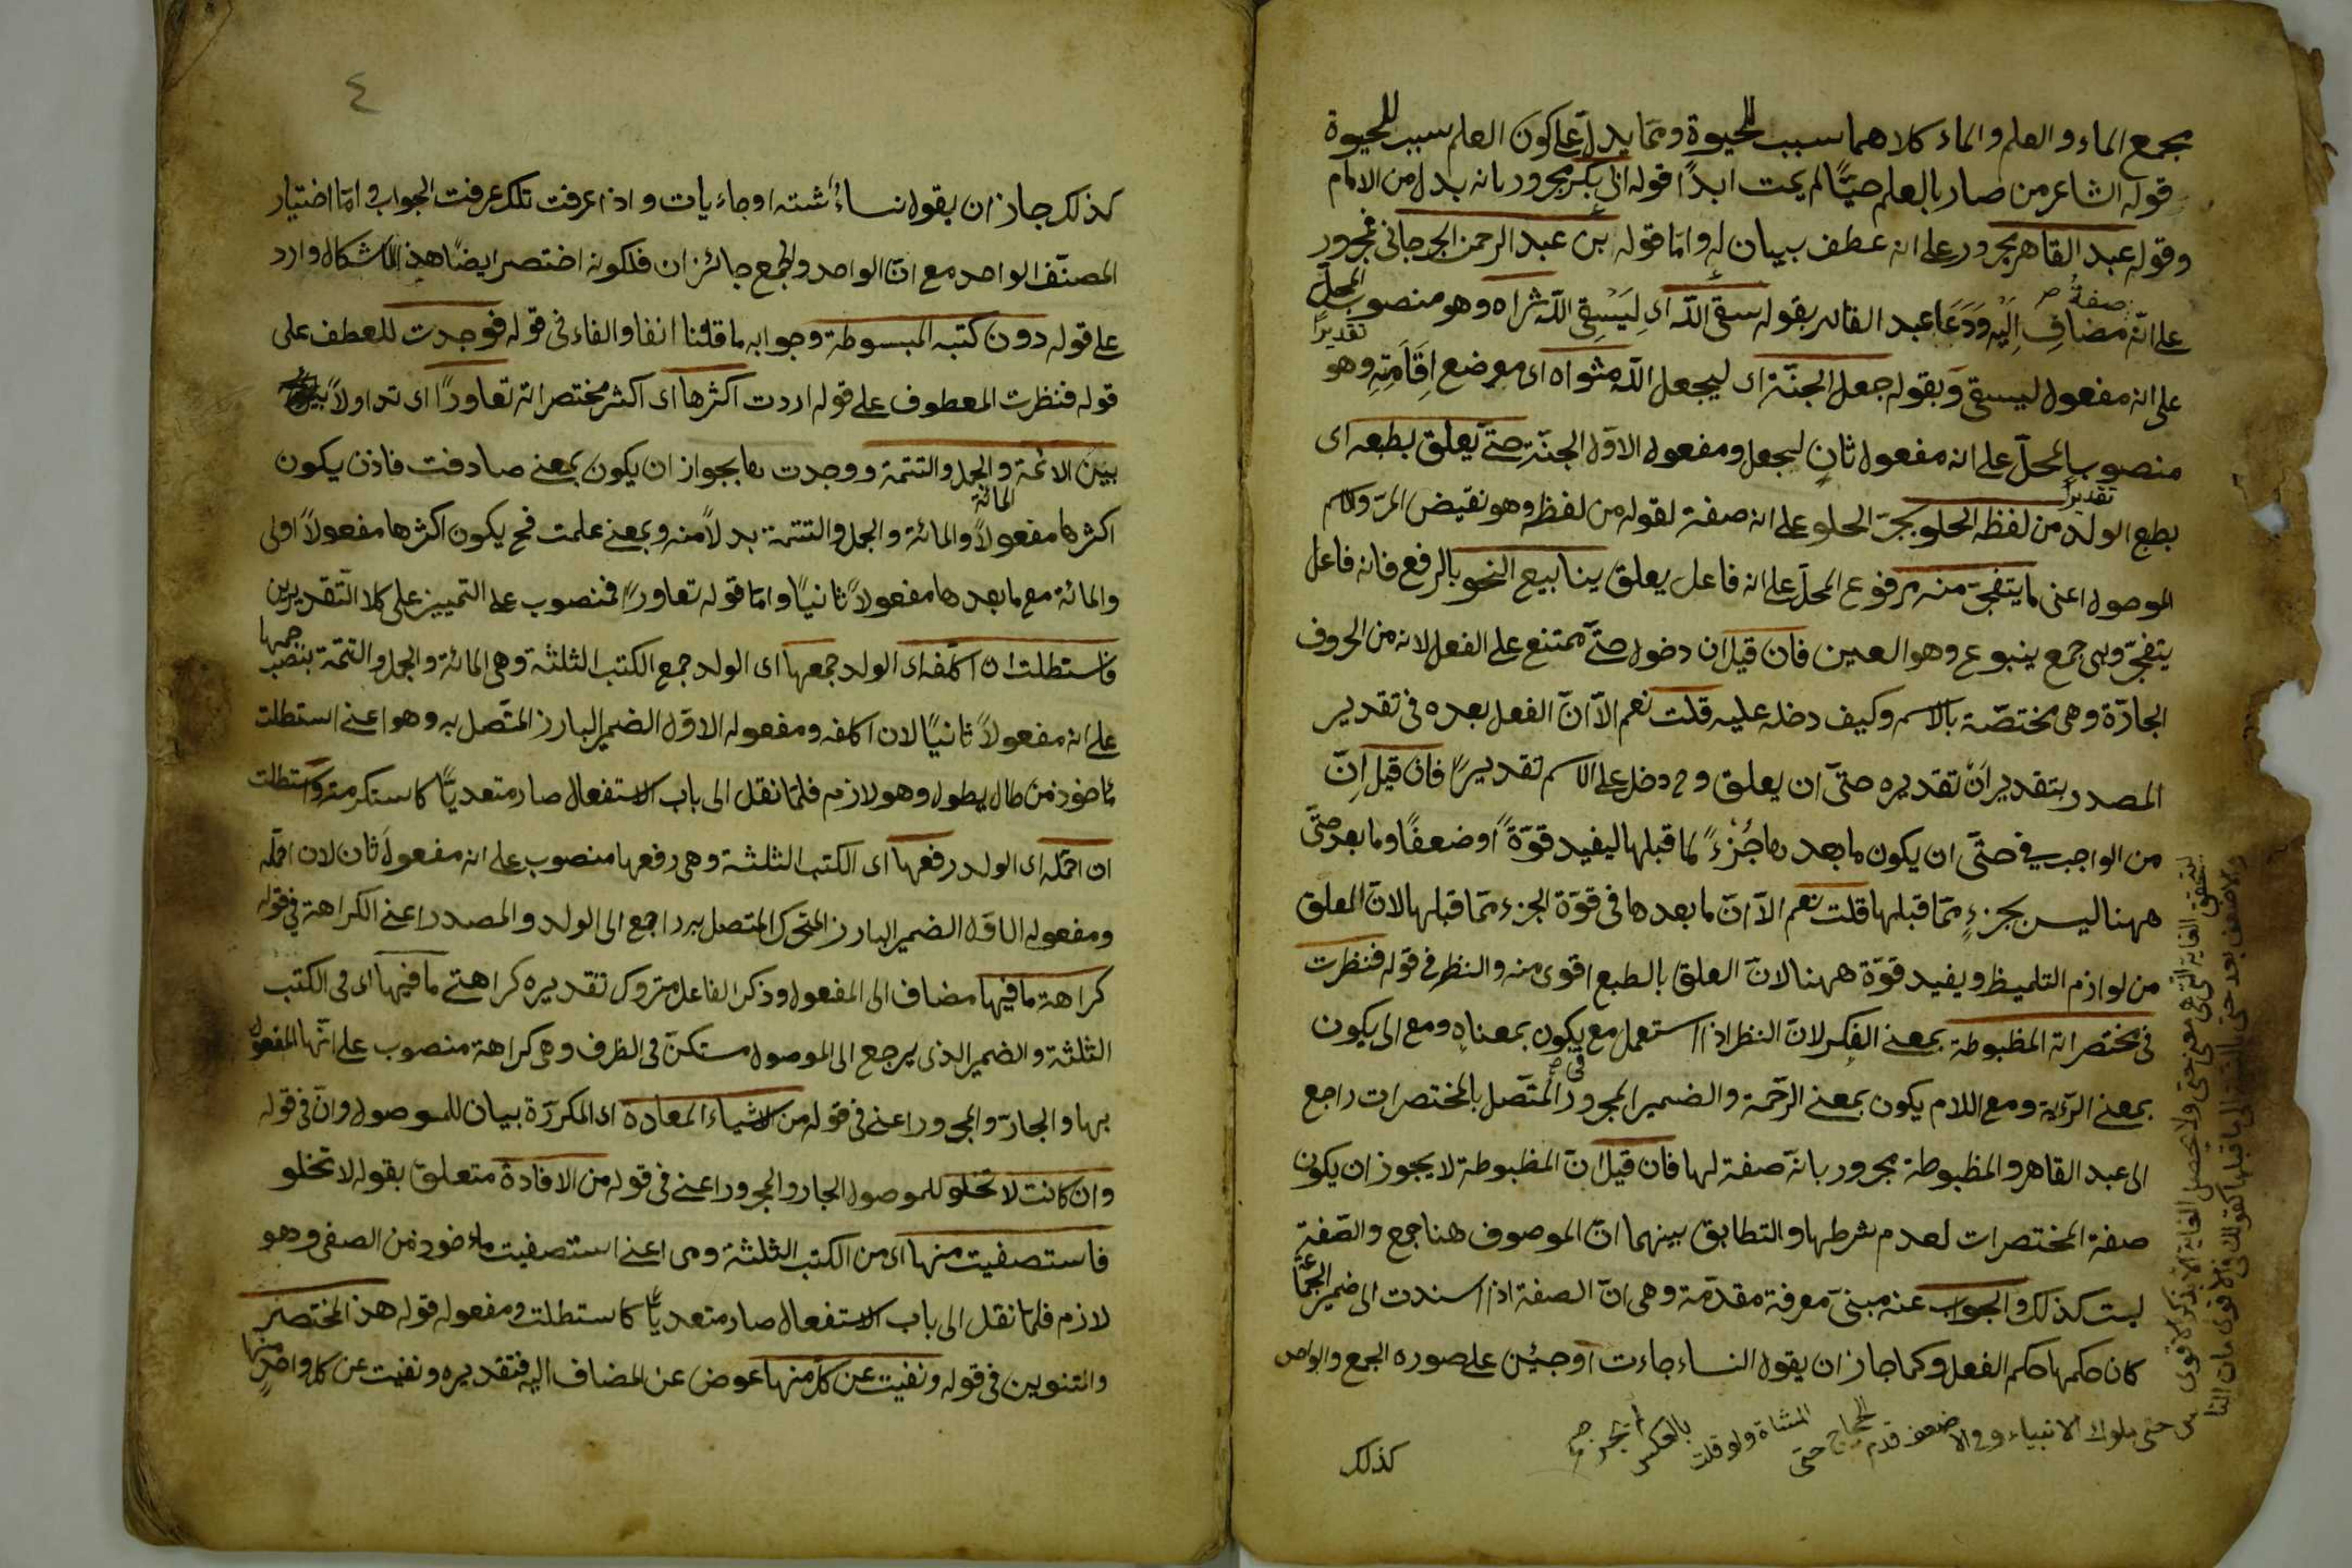 مجمع الماء والعلم والماء كلاهما سبب للحيوة ومما يدل على كون العلم سبب للحيوة
قوله الشاعر من صار بالعلم حيًّا لم يمت ابدًا قوله ابى بكر مجرور بانه بدل من الامام
وقوله عبد القاهر مجرور على انه عطف بيان له واما قوله بن عبد الرحمن الجرجانى فمجرور
صفة
على انّه مضافِ اِلَيْه وَدَعَا عبد القاهر بقوله سقى اللّه اى لِيَسْقِى اللّه ثراه وهو منصوب المحلّ
تقديرًا
على انه مفعول ليسقى وَبقوله جعل الجنّة اى ليجعل اللّه مثواه اى موضع اِقَامَتِهِ وهو
منصوب المحلّ على انه مفعول ثانٍ ليجعل ومفعول الاوّل الجنّة حتّى يعلق بطبعه اى
تقديرًا
بطبع الولد من لفظه الحلو بجرّ الحلو على انه صفة لقوله من لفظه وهو نقيض المرّ والاسم
الموصول اعنى ما يتفجّر منه مرفوع المحلّ على انه فاعل يعلق ينابيع النحو بالرفع فانه فاعل
يتفجّر وهى جمع ينبوع وهو العين فان قيل ان دخول حتّى ممتنع على الفعل لانه من الحروف
الجارّة وهى مختصّة بالاسم وكيف دخل عليه قلت نعم الاّ انّ الفعل بعده فى تقدير
المصدر بتقدير اَنْ تقديره حتّى ان يعلق وح دخل على الاسم تقديرًا فان قيل اِنّ
من الواجب فى حتّى ان يكون ما بعدها جُزْءً لما قبلها ليفيد قوّةً اوضعفًا وما بعد حتّى
ههنا ليس بجزءٍ ممّا قبلها قلت نعم الاّ انّ ما بعدها فى قوّة الجزء ممّا قبلها لانّ العلق
من لوازم التلميظ ويفيد قوّة ههنا لانّ العلق بالطبع اقوى منه والنظر فى قوله فنظرت
فى مختصراته المظبوطة بمعنى الفكر لانّ النظر اذا استعمل مع يكون بمعناه ومع الى يكون
فى صح
بمعنى الرّؤية ومع اللام يكون بمعنى الرّحمة والضمير المجرور المتّصل بالمختصرات راجع
الى عبد القاهر والمظبوطة مجرور بانّه صفة لها فان قيل انّ المظبوطة لا يجوز ان يكون
صفة المختصرات لعدم شرطها والتطابق بينهما انّ الموصوف هنا جمع والصّفة
ليست كذلك والجواب عنه مبنىّ معرفة مقدّمة وهى انّ الصفة اذا اسندت الى ضمير الجماعة
كان حكمها حكم الفعل وكما جاز ان يقول النساء جاءت اوجئن على صوره الجمع والواحد
حتى ملوك الانبياء وفى الاضعف قدم الحجاج حتى المشاة ولو قلت بالعكس لم يجز صح
كذلك
٤
كذلك جاز ان يقول نساءٌ شته اوجاءيات واذا عرفت تلك عرفت الجواب وامّا اختيار
المصنّف الواحد مع انّ الواحد والجمع جائزان فلكونه اختصر ايضًا هذ الاشكال وارد
على قوله دون كتبه المبسوطة وجوابه ما قلنا انفا والفاء فى قوله فوجدت للعطف على
قوله فنظرت المعطوف على قوله اردت اكثرها اى اكثر مختصراته تعاورًا اى تداولاً
بيْن الائمة والجمل والتتمة ووجدت ها بجواز ان يكون بمعنى صادفت فاذن يكون
المائة
اكثرها مفعولاً والمائة والجمل والتتمة بدلاً منه وبمعنى علمت فح يكون اكثرها مفعولاً اولى
والمائة مع ما بعدها مفعولاً ثانيًا وامّا قوله تعاورًا فمنصوب على التمييز على كلا التّقديرين
فاستطلت ان اكلّفه اى الولد جمعها اى الولد جمع الكتب الثلثة وهى المائة والجمل والتتمة بنصب جمعها
على انه مفعولاً ثانيًا لان اكلفه ومفعوله الاوّل الضمير البارز المتّصل به وهو اعنى استطلت
مأخوذ من طال يطول وهو لازم فلمّا نقل الى باب الاستفعال صار متعديًّا كاستكرمته واستطلت
ان احمّله اى الولد رفعها اى الكتب الثلثة وهى رفعها منصوب على انه مفعولَ ثان لان احمّله
ومفعوله الاوّل الضمير البارز المتحرك المتصل به راجع الى الولد والمصدر اعنى الكراهة فى قوله
كراهة ما فيها مضاف الى المفعول وذكر الفاعل متروك تقديره كراهتى ما فيها اى فى الكتب
الثلثة والضمير الذى يرجع الى الموصول مستكنّ فى الظرف وهى كراهة منصوب على انّها المفعول
بها والجارّ والمجرور اعنى فى قوله من الاشياء المعادة اى المكرّرة بيان للموصول وانّ فى قوله
وان كانت لا تخلو للموصول الجار والمجرور اعنى فى قوله من الافادة متعلّق بقوله لا تخلو
فاستصفيت منها اى من الكتب الثلثة وهى اعنى استصفيت مأخوذ من الصفى وهو
لازم فلمّا نقل الى باب الاستفعال صار متعديًّا كاستطلت ومفعوله قوله هذ المختصر
والتنوين فى قوله ونفيت عن كلّ منها عوض عن المضاف اليه فتقديره ونفيت عن كل واحدٍ منها